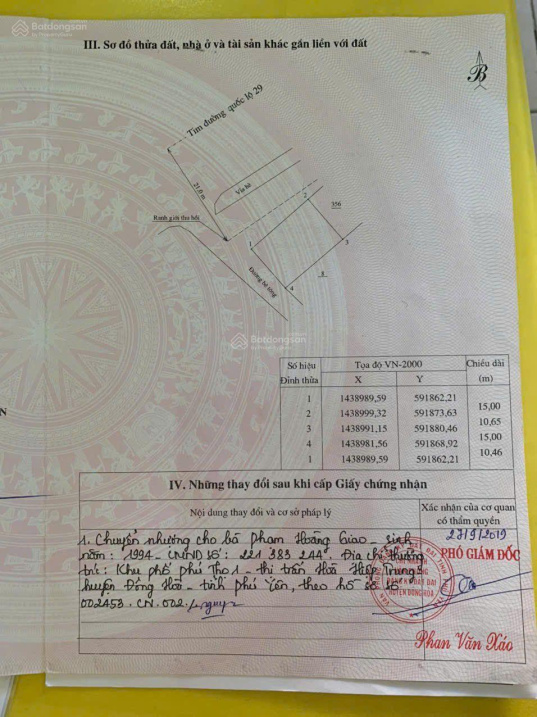 Batdongsan
by PropertyGuru
III. Sơ đồ thửa đất, nhà ở và tài sản khác gắn liền với đất
B
Tim đường quốc lộ 29
21,0 m
Vỉa hè
2
356
Ranh giới thu hồi
1
3
Đường bê tông
8
4
Batdongsan
by PropertyGuru
Số hiệu Đỉnh thửa Tọa độ VN-2000 Chiều dài (m)
X Y
1 1438989,59 591862,21
15,00
2 1438999,32 591873,63
10,65
3 1438991,15 591880,46
15,00
4 1438981,56 591868,92
10,46
1 1438989,59 591862,21
N
IV. Những thay đổi sau khi cấp Giấy chứng nhận
Nội dung thay đổi và cơ sở pháp lý
Xác nhận của cơ quan
có thẩm quyền
1. Chuyển nhượng cho bà Phạm Hoàng Giao - sinh
năm: 1994 - CMND số: 221 383 244. Địa chỉ thường
trú: Khu phố phú Thọ 1 - thị trấn Hoà Hiệp Trung
huyện Đông Hoà - tỉnh phú Yên, theo hồ sơ số
002453. CN. 002.
23/9/2019
PHÓ GIÁM ĐỐC
CHI NHÁNH
VĂN PHÒNG
ĐĂNG KÝ ĐẤT ĐAI
HUYỆN ĐÔNG HÒA
Phan Văn Xáo